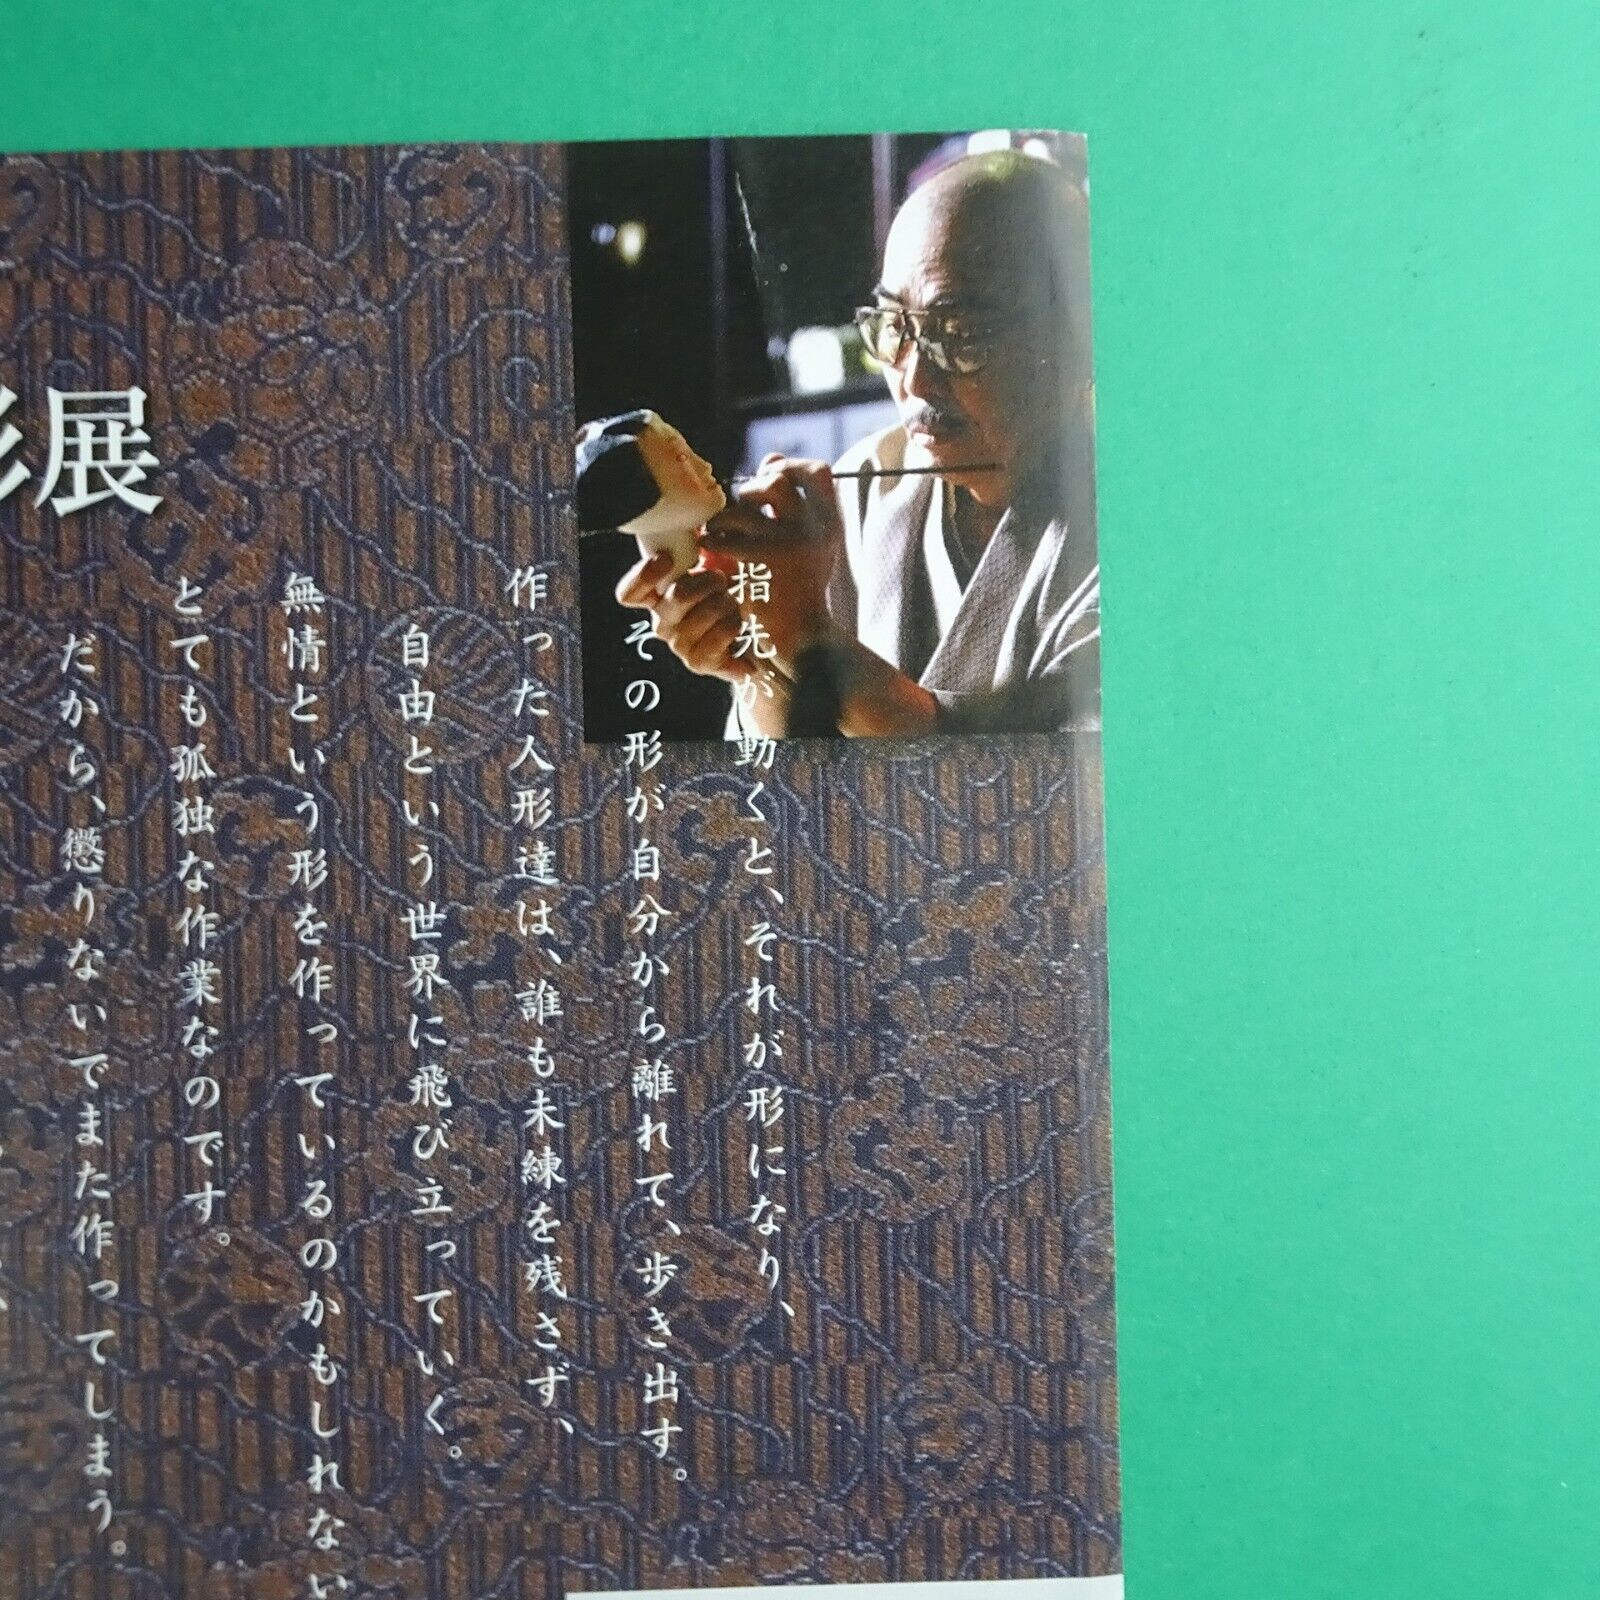 展
指先が動くと、それが形になり、
その形が自分から離れて、歩き出す。
作った人形達は、誰も未練を残さず、
自由という世界に飛び立っていく。
無情という形を作っているのかもしれない
とても孤独な作業なのです。
だから、懲りないでまた作ってしまう。